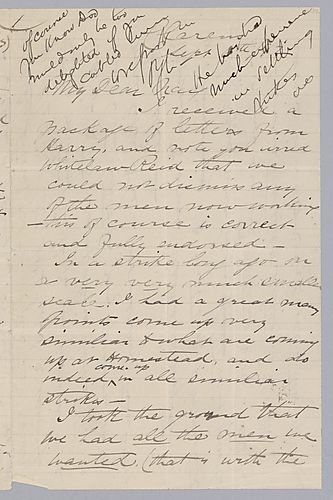 1
of course
you know Dod
would only be too
delighted if you
cabled
He has had
much experience
in settling
strikes
Sept
My Dear
I received a
package of letters from
Harry, and note you wired
Whitelaw Reid that we
could not dismiss any
of the men now working
- this of course is correct
and fully endorsed -
In a strike long ago on
a very very much smaller
scale. I had a great many
points come up very
similiar to what are coming
up at Homestead, and do
indeed, come up in all similiar
strikes -
I took the ground that
we had all the men we
wanted. (that is with the